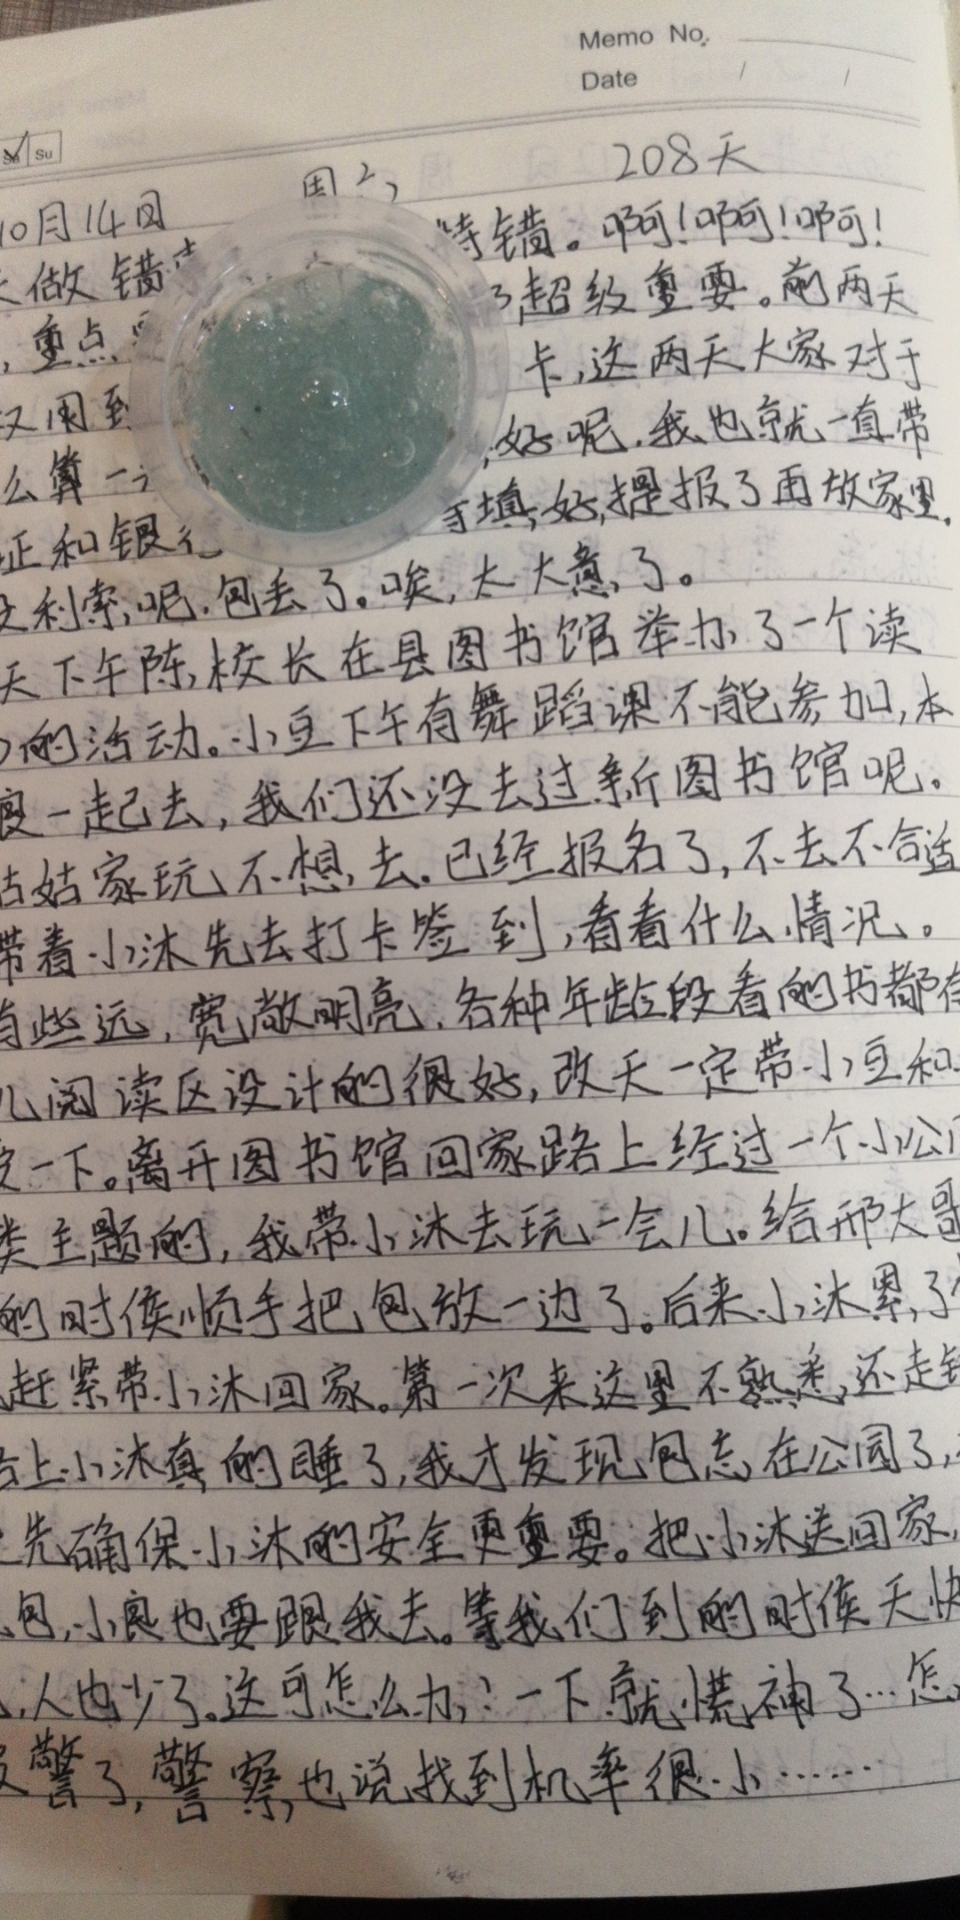 Memo No.
Date / /
Sa Su
10月14日 周六 208天
做错 特错。啊!啊!啊!
,重点 了超级重要。前两天
又用到 卡,这两天大家对于
么算一 好呢,我也就一直带
证和银行 等填好,提报了再放家里,
利索呢,包丢了。唉,太大意了。
天下午陈校长在县图书馆举办了一个读
的活动。小豆下午有舞蹈课不能参加,本
良一起去,我们还没去过新图书馆呢。
姑姑家玩不想去。已经报名了,不去不合适
带着小沐先去打卡签到,看看什么情况。
有些远,宽敞明亮,各种年龄段看的书都有
儿阅读区设计的很好,改天一定带小豆和
一下。离开图书馆回家路上经过一个小公
类主题的,我带小沐去玩一会儿。给邢大哥
的时候顺手把包放一边了。后来小沐累了
赶紧带小沐回家。第一次来这里不熟悉,还走错
路上小沐真的睡了,我才发现包忘在公园了,
先确保小沐的安全更重要。把小沐送回家,
包,小良也要跟我去。等我们到的时候天快
,人也少了。这可怎么办?一下就慌神了…怎
报警了,警察也说找到机率很小……